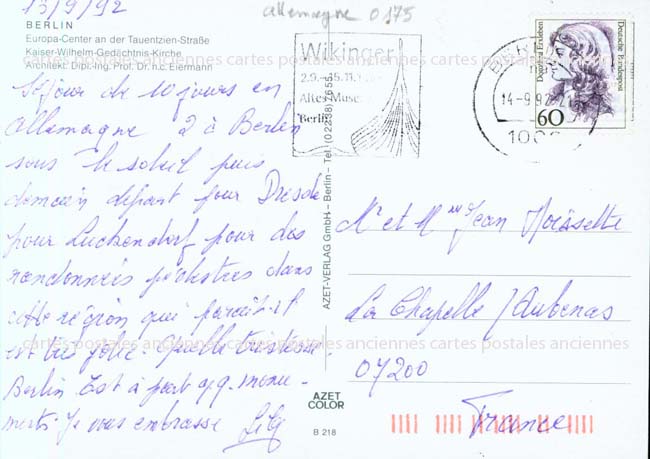 13/9/92
allemagne 0175
BERLIN
Europa-Center an der Tauentzien-Straße
Kaiser-Wilhelm-Gedächtnis-Kirche
Architekt: Dipl.-Ing. Prof. Dr. h.c. Eiermann
Séjour de 10 jours en
allemagne 2 à Berlin
sous le soleil puis
demain départ pour Dresde
pour Luckendorf pour des
randonnées pédestres dans
cette région qui paraît-il
est très jolie. Quelle tristesse
Berlin Est à part qq. monu-
ments. Je vous embrasse
Wikinger
2.9.-15.11.
Altes Muse
Berlin
AZET-VERLAG GmbH – Berlin – Tel. (02238) 7655
AZET
COLOR
B 218
14-9.92
1000
Dorothea Erxleben
Deutsche Bundespost
60
Mr et Mme Jean
La Chapelle / Aubenas
07200
France
cartes postales anciennes cartes postales anciennes cartes postales anciennes